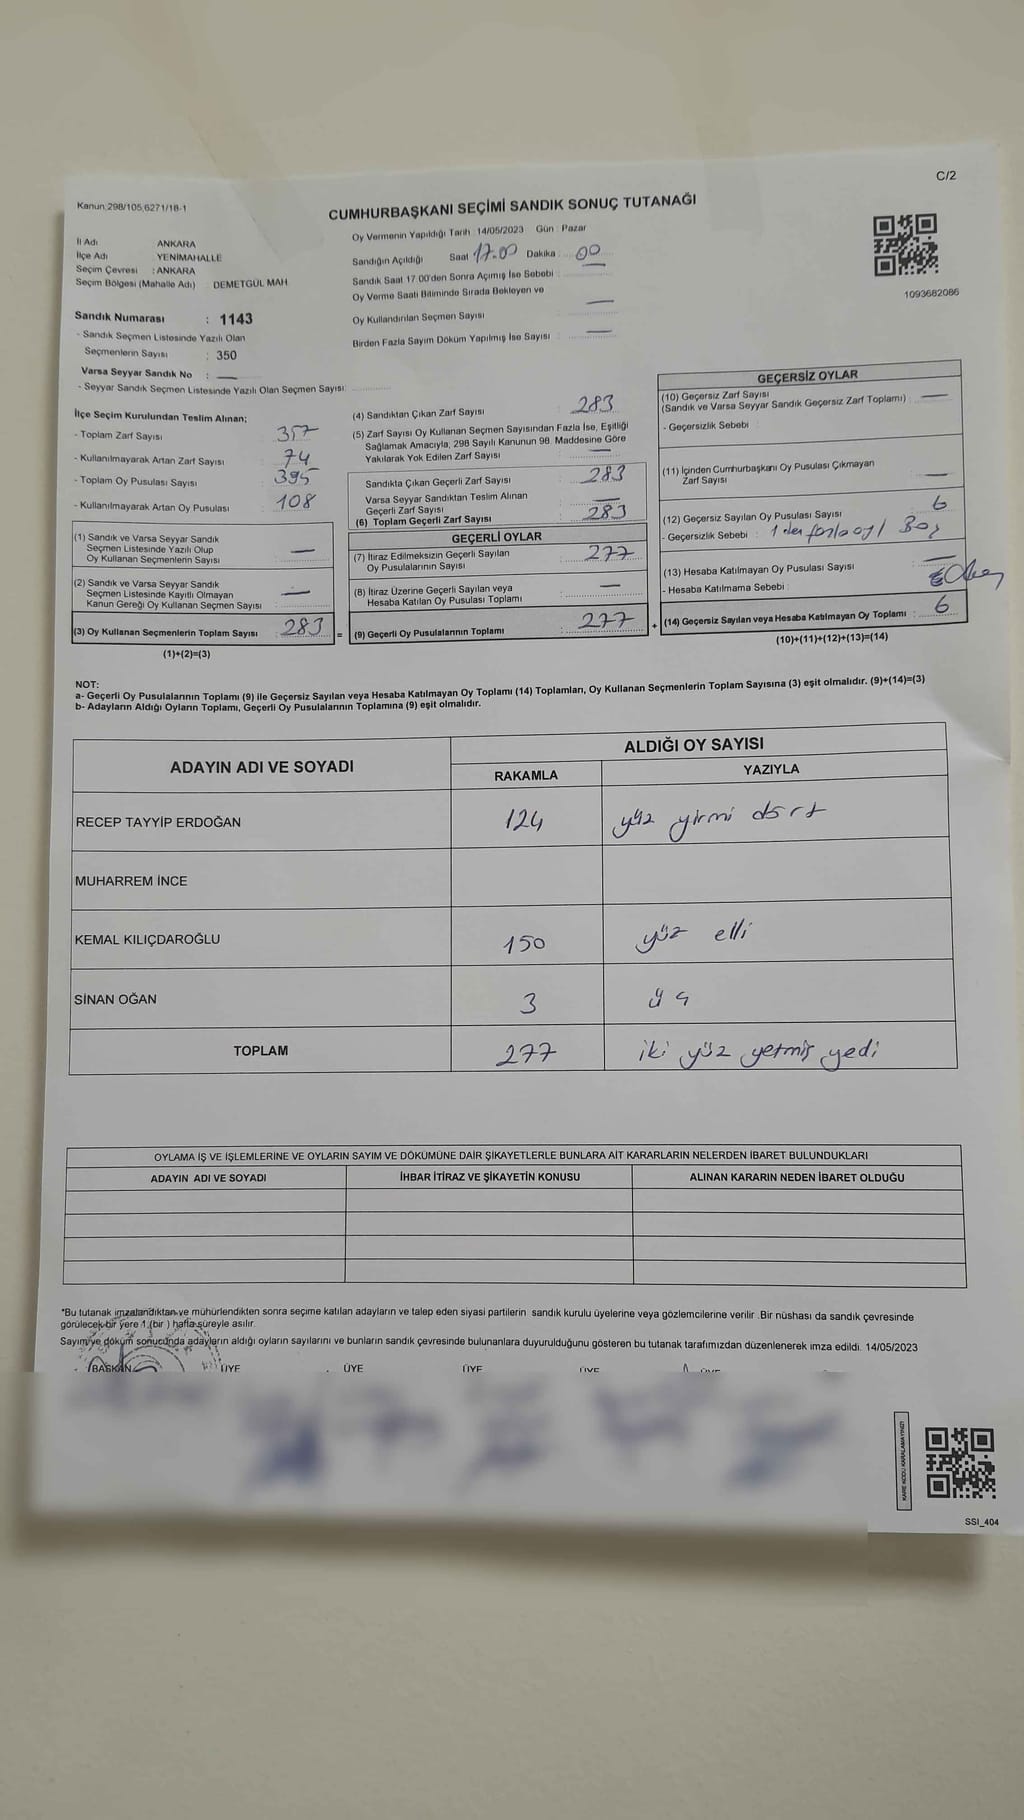 C/2
Kanun,298/105,6271/18-1
CUMHURBAŞKANI SEÇİMİ SANDIK SONUÇ TUTANAĞI
İl Adı ANKARA
İlçe Adı YENİMAHALLE
Seçim Çevresi : ANKARA
Seçim Bölgesi (Mahalle Adı) : DEMETGÜL MAH.
Oy Vermenin Yapıldığı Tarih : 14/05/2023 Gün : Pazar
Sandığın Açıldığı Saat 17.00 Dakika : 00
Sandık Saat 17:00'den Sonra Açımış İse Sebebi : —
Oy Verme Saati Bitiminde Sırada Bekleyen ve
Oy Kullandırılan Seçmen Sayısı —
Birden Fazla Sayım Döküm Yapılmış İse Sayısı : —
1093682086
Sandık Numarası : 1143
- Sandık Seçmen Listesinde Yazılı Olan
Seçmenlerin Sayısı : 350
Varsa Seyyar Sandık No : —
- Seyyar Sandık Seçmen Listesinde Yazılı Olan Seçmen Sayısı:
İlçe Seçim Kurulundan Teslim Alınan;
- Toplam Zarf Sayısı 357
- Kullanılmayarak Artan Zarf Sayısı 74
- Toplam Oy Pusulası Sayısı 395
- Kullanılmayarak Artan Oy Pusulası 108
(1) Sandık ve Varsa Seyyar Sandık
Seçmen Listesinde Yazılı Olup
Oy Kullanan Seçmenlerin Sayısı —
(2) Sandık ve Varsa Seyyar Sandık
Seçmen Listesinde Kayıtlı Olmayan
Kanun Gereği Oy Kullanan Seçmen Sayısı —
(3) Oy Kullanan Seçmenlerin Toplam Sayısı 283 =
(1)+(2)=(3)
(4) Sandıktan Çıkan Zarf Sayısı 283
(5) Zarf Sayısı Oy Kullanan Seçmen Sayısından Fazla İse, Eşitliği
Sağlamak Amacıyla, 298 Sayılı Kanunun 98. Maddesine Göre
Yakılarak Yok Edilen Zarf Sayısı —
Sandıkta Çıkan Geçerli Zarf Sayısı 283
Varsa Seyyar Sandıktan Teslim Alınan
Geçerli Zarf Sayısı —
(6) Toplam Geçerli Zarf Sayısı 283
GEÇERLİ OYLAR
(7) İtiraz Edilmeksizin Geçerli Sayılan
Oy Pusulalarının Sayısı 277
(8) İtiraz Üzerine Geçerli Sayılan veya
Hesaba Katılan Oy Pusulası Toplamı —
(9) Geçerli Oy Pusulalarının Toplamı 277 +
GEÇERSİZ OYLAR
(10) Geçersiz Zarf Sayısı
(Sandık ve Varsa Seyyar Sandık Geçersiz Zarf Toplamı) : —
- Geçersizlik Sebebi :
(11) İçinden Cumhurbaşkanı Oy Pusulası Çıkmayan
Zarf Sayısı —
(12) Geçersiz Sayılan Oy Pusulası Sayısı 6
- Geçersizlik Sebebi : 1 den fazla oy / Boş
(13) Hesaba Katılmayan Oy Pusulası Sayısı —
- Hesaba Katılmama Sebebi :
(14) Geçersiz Sayılan veya Hesaba Katılmayan Oy Toplamı : 6
(10)+(11)+(12)+(13)=(14)
NOT:
a- Geçerli Oy Pusulalarının Toplamı (9) ile Geçersiz Sayılan veya Hesaba Katılmayan Oy Toplamı (14) Toplamları, Oy Kullanan Seçmenlerin Toplam Sayısına (3) eşit olmalıdır. (9)+(14)=(3)
b- Adayların Aldığı Oyların Toplamı, Geçerli Oy Pusulalarının Toplamına (9) eşit olmalıdır.
ADAYIN ADI VE SOYADI ALDIĞI OY SAYISI
RAKAMLA YAZIYLA
RECEP TAYYİP ERDOĞAN 124 yüz yirmi dört
MUHARREM İNCE
KEMAL KILIÇDAROĞLU 150 yüz elli
SİNAN OĞAN 3 üç
TOPLAM 277 iki yüz yetmiş yedi
OYLAMA İŞ VE İŞLEMLERİNE VE OYLARIN SAYIM VE DÖKÜMÜNE DAİR ŞİKAYETLERLE BUNLARA AİT KARARLARIN NELERDEN İBARET BULUNDUKLARI
ADAYIN ADI VE SOYADI İHBAR İTİRAZ VE ŞİKAYETİN KONUSU ALINAN KARARIN NEDEN İBARET OLDUĞU
*Bu tutanak imzalandıktan ve mühürlendikten sonra seçime katılan adayların ve talep eden siyasi partilerin sandık kurulu üyelerine veya gözlemcilerine verilir .Bir nüshası da sandık çevresinde
görülecek bir yere 1 (bir ) hafta süreyle asılır.
Sayım ve döküm sonucunda adayların aldığı oyların sayılarını ve bunların sandık çevresinde bulunanlara duyurulduğunu gösteren bu tutanak tarafımızdan düzenlenerek imza edildi. 14/05/2023
BAŞKAN ÜYE ÜYE ÜYE ÜYE ÜYE
KARE KODU KARALAMAYINIZ!
SSI_404